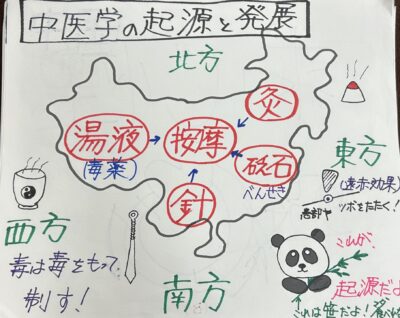 中医学の起源と発展
北方
灸
湯液
(毒薬)
按摩
砭石
べんせき
東方
(遠赤効果)
患部ヤ
ツボをたたく!
針
西方
毒は毒をもって
制す!
南方
これが、
起源だよ
これは笹だよ!